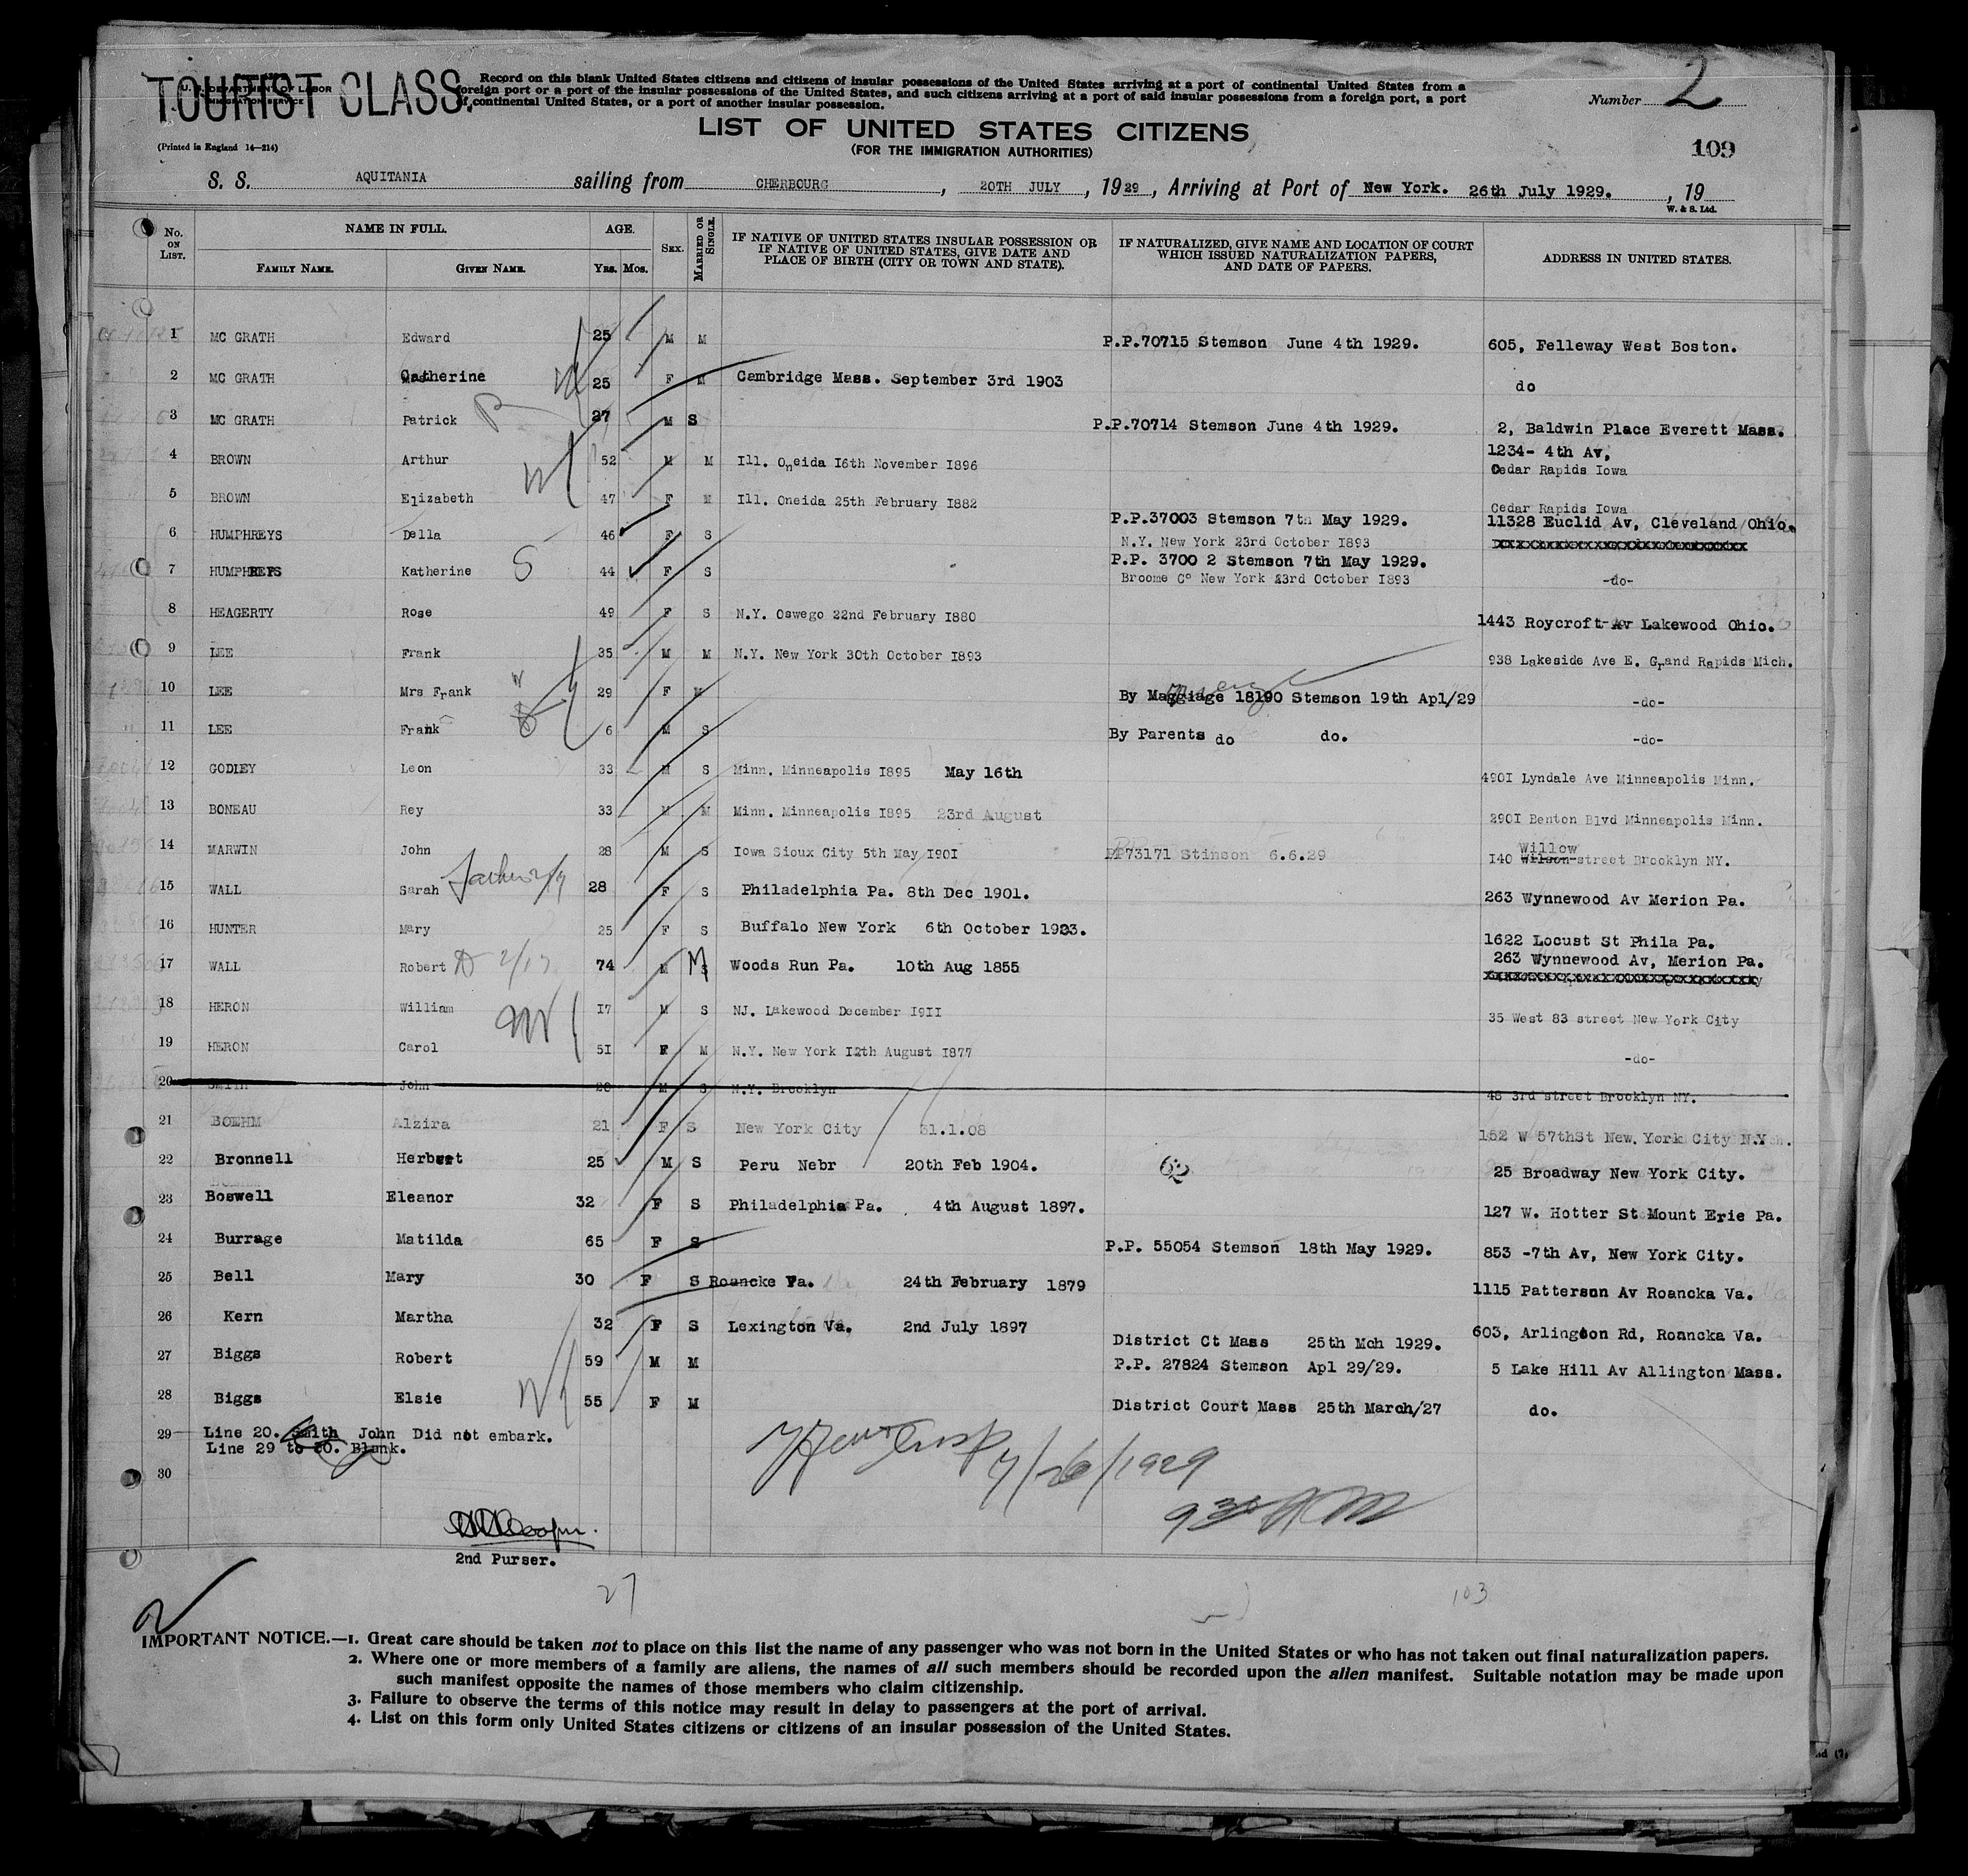 TOURIST CLASS.
U. S. DEPARTMENT OF LABOR
IMMIGRATION SERVICE
Record on this blank United States citizens and citizens of insular possessions of the United States arriving at a port of continental United States from a
foreign port or a port of the insular possessions of the United States, and such citizens arriving at a port of said insular possessions from a foreign port, a port
of continental United States, or a port of another insular possession.
Number 2
LIST OF UNITED STATES CITIZENS
(FOR THE IMMIGRATION AUTHORITIES)
(Printed in England 14—214)
109
S. S. AQUITANIA sailing from CHERBOURG, 20TH JULY, 1929, Arriving at Port of New York. 26th July 1929., 19
W. & S. Ltd.
No. ON LIST. NAME IN FULL. FAMILY NAME. GIVEN NAME. AGE. YRS. MOS. SEX. MARRIED OR SINGLE. IF NATIVE OF UNITED STATES INSULAR POSSESSION OR IF NATIVE OF UNITED STATES, GIVE DATE AND PLACE OF BIRTH (CITY OR TOWN AND STATE). IF NATURALIZED, GIVE NAME AND LOCATION OF COURT WHICH ISSUED NATURALIZATION PAPERS, AND DATE OF PAPERS. ADDRESS IN UNITED STATES.
1 MC GRATH Edward 25 M M P.P.70715 Stemson June 4th 1929. 605, Felleway West Boston.
2 MC GRATH Catherine 25 F M Cambridge Mass. September 3rd 1903 do
3 MC GRATH Patrick 27 M S P.P.70714 Stemson June 4th 1929. 2, Baldwin Place Everett Mass.
4 BROWN Arthur 52 M M Ill. Oneida I6th November I896 1234- 4th Av, Cedar Rapids Iowa
5 BROWN Elizabeth 47 F M Ill. Oneida 25th February I882 Cedar Rapids Iowa
6 HUMPHREYS Della 46 F S P.P.37003 Stemson 7th May 1929. N.Y. New York 23rd October I893 11328 Euclid Av, Cleveland Ohio.
7 HUMPHREYS Katherine 44 F S P.P. 3700 2 Stemson 7th May 1929. Broome Co New York 23rd October I893 -do-
8 HEAGERTY Rose 49 F S N.Y. Oswego 22nd February I880 1443 Roycroft Av Lakewood Ohio.
9 LEE Frank 35 M M N.Y. New York 30th October I893 938 Lakeside Ave E. Grand Rapids Mich.
10 LEE Mrs Frank 29 F M By Maggiage 18190 Stemson 19th Apl/29 -do-
11 LEE Frank 6 M S By Parents do do. -do-
12 GODLEY Leon 33 M S Minn. Minneapolis I895 May 16th 490I Lyndale Ave Minneapolis Minn.
13 BONEAU Rey 33 M M Minn. Minneapolis I895 23rd August 290I Benton Blvd Minneapolis Minn.
14 MARWIN John 28 M S Iowa Sioux City 5th May I90I PP73171 Stinson 6.6.29 I40 Wilson Willow street Brooklyn NY.
15 WALL Sarah 28 F S Philadelphia Pa. 8th Dec 1901. 263 Wynnewood Av Merion Pa.
16 HUNTER Mary 25 F S Buffalo New York 6th October 1903. 1622 Locust St Phila Pa.
17 WALL Robert 74 M M Woods Run Pa. 10th Aug 1855 263 Wynnewood Av, Merion Pa.
18 HERON William I7 M S NJ. Lakewood December I9II 35 West 83 street New York City
19 HERON Carol 5I F M N.Y. New York I2th August I877 -do-
20 SMITH John 28 M S N.Y. Brooklyn 48 3rd street Brooklyn NY.
21 BOEHM Alzira 21 F S New York City 31.1.08 152 W 57thSt New York City N.Y
22 Bronnell Herbert 25 M S Peru Nebr 20th Feb 1904. 25 Broadway New York City.
23 Boswell Eleanor 32 F S Philadelphia Pa. 4th August 1897. 127 W. Hotter St Mount Erie Pa.
24 Burrage Matilda 65 F S P.P. 55054 Stemson 18th May 1929. 853 -7th Av, New York City.
25 Bell Mary 30 F S Roancke Va. 24th February 1879 1115 Patterson Av Roancka Va.
26 Kern Martha 32 F S Lexington Va. 2nd July 1897 603, Arlington Rd, Roancka Va.
27 Biggs Robert 59 M M District Ct Mass 25th Mch 1929. P.P. 27824 Stemson Apl 29/29. 5 Lake Hill Av Allington Mass.
28 Biggs Elsie 55 F M District Court Mass 25th March/27 do.
29 Line 20. Smith John Did not embark.
Line 29 to 30. Blank.
30
7/26/1929
9 30 AM
2nd Purser.
27
103
IMPORTANT NOTICE.—1. Great care should be taken not to place on this list the name of any passenger who was not born in the United States or who has not taken out final naturalization papers.
2. Where one or more members of a family are aliens, the names of all such members should be recorded upon the alien manifest. Suitable notation may be made upon
such manifest opposite the names of those members who claim citizenship.
3. Failure to observe the terms of this notice may result in delay to passengers at the port of arrival.
4. List on this form only United States citizens or citizens of an insular possession of the United States.